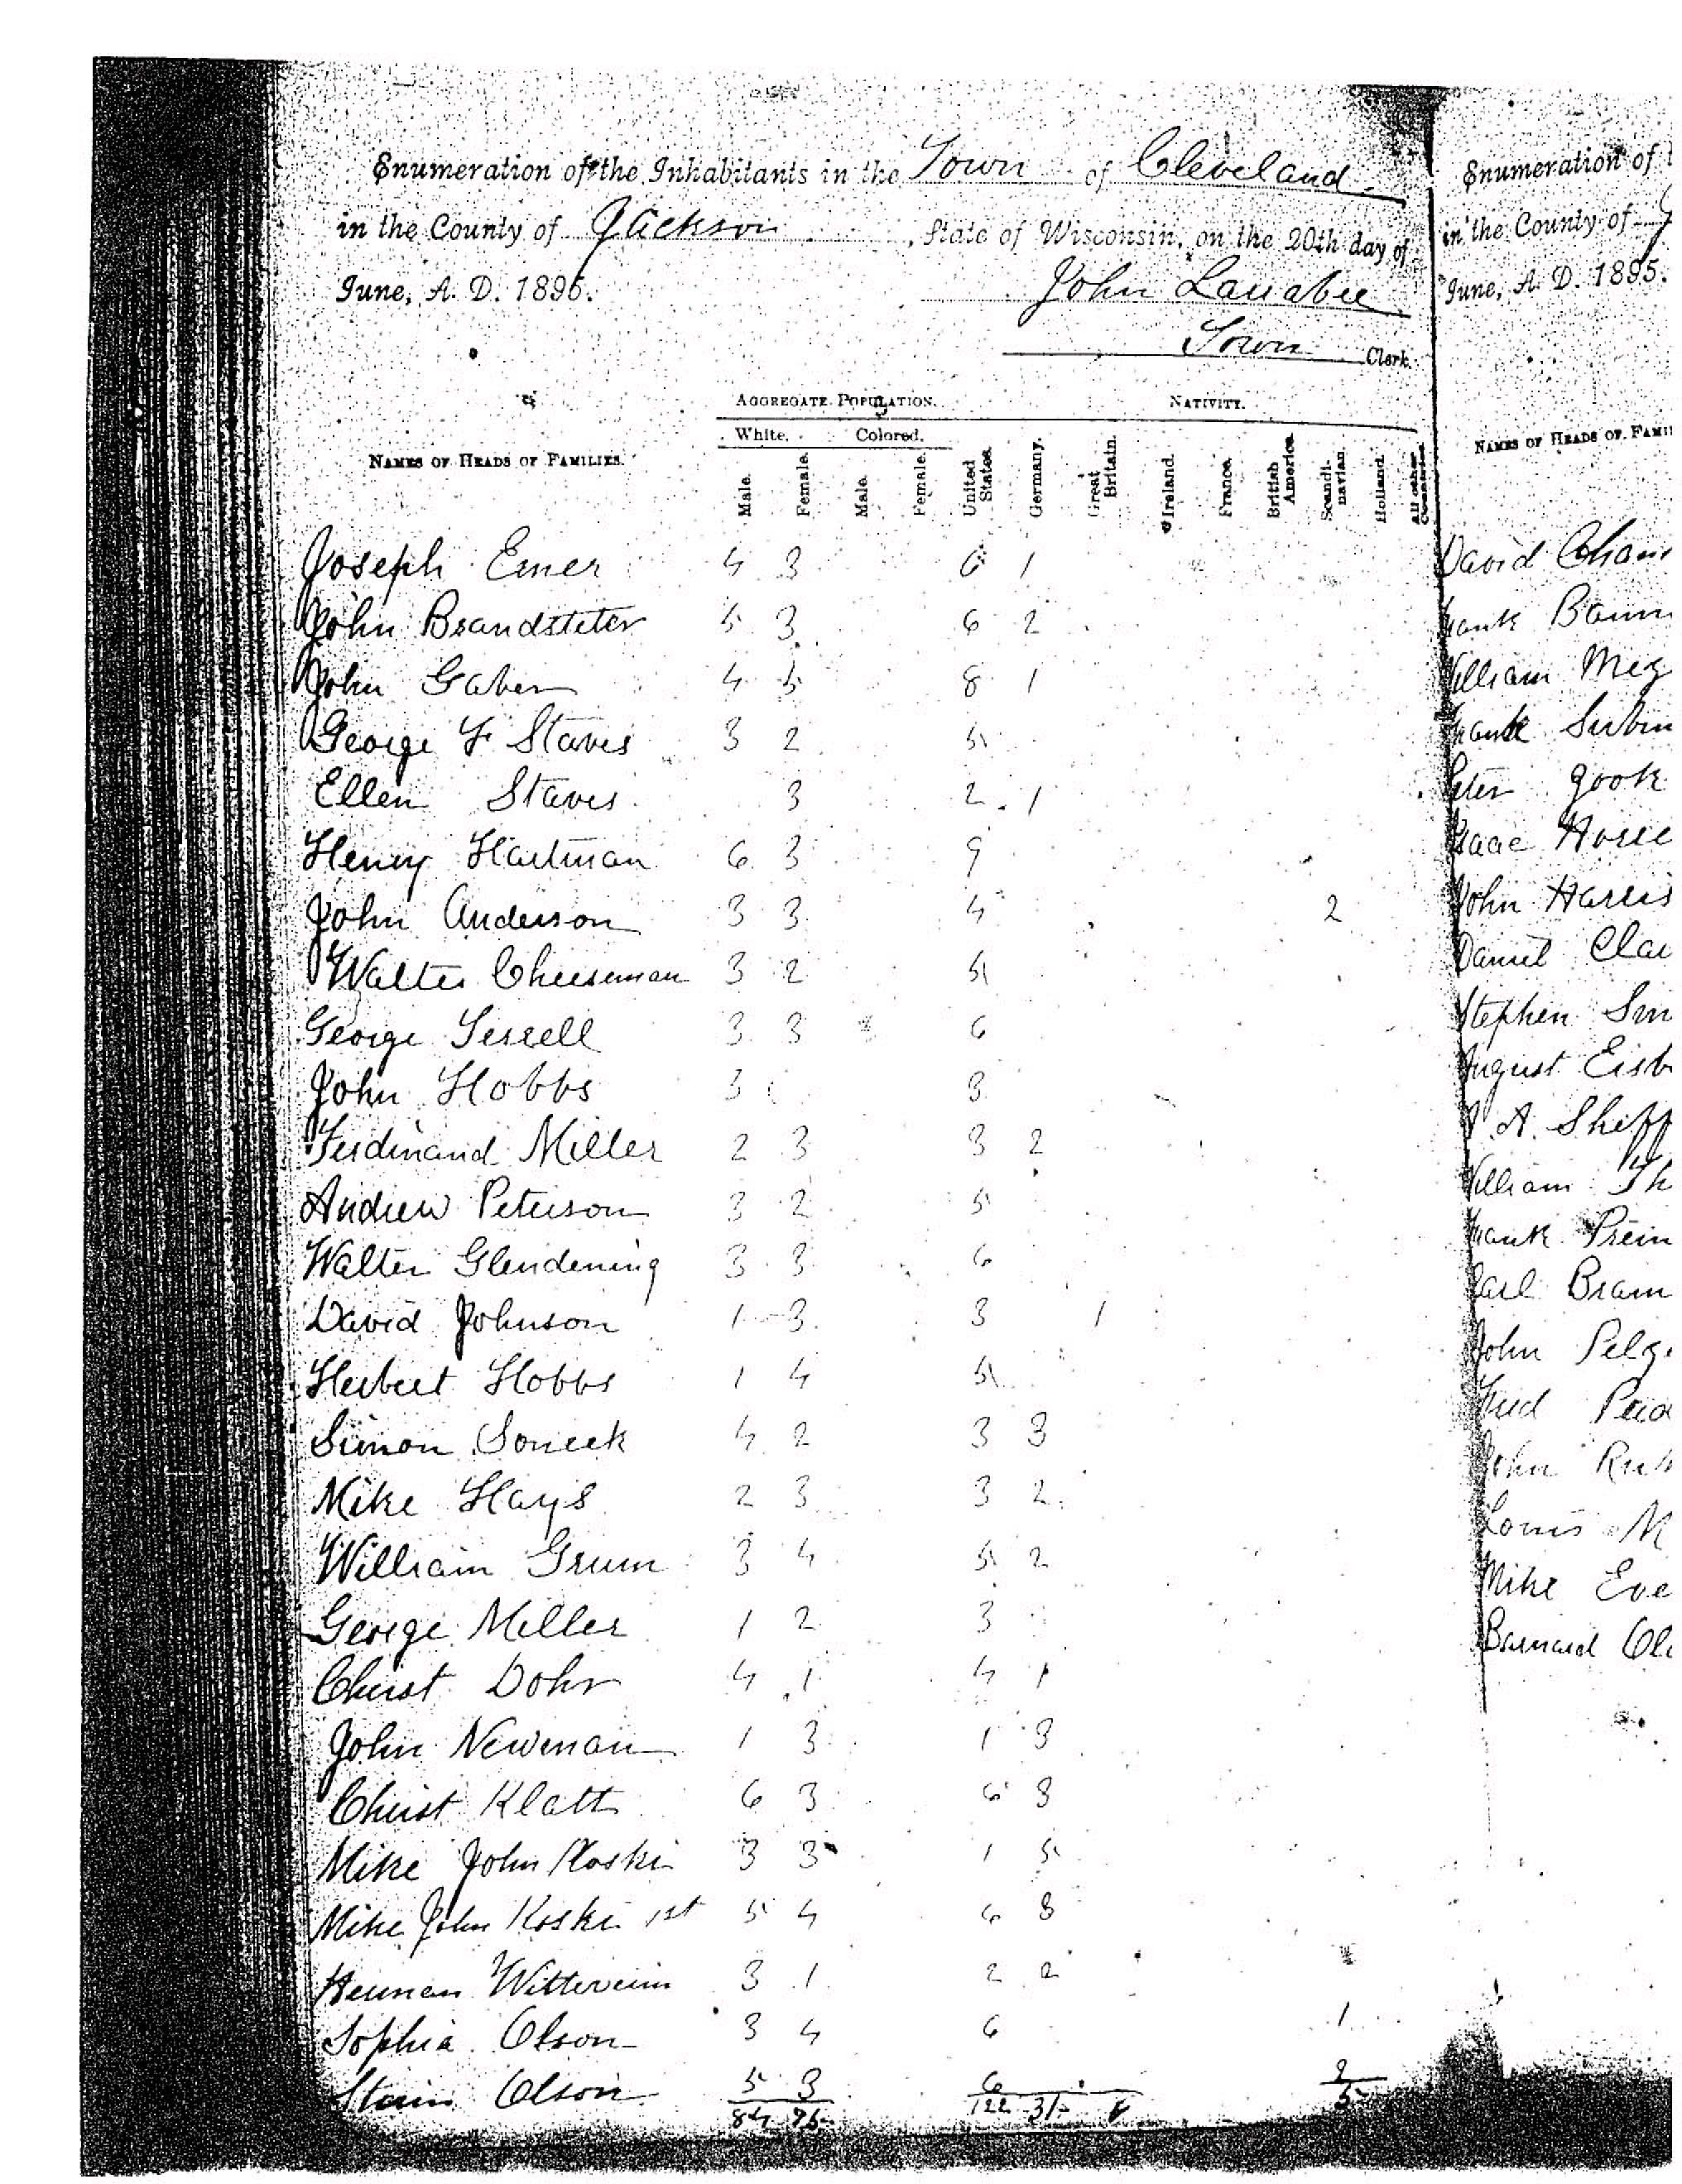 Enumeration of the Inhabitants in the Town of Cleveland
in the County of Jackson, State of Wisconsin, on the 20th day of
June, A. D. 1895.
John Larrabee
Town Clerk.
AGGREGATE POPULATION. NATIVITY.
White. Colored.
NAMES OF HEADS OF FAMILIES. Male. Female. Male. Female. United States. Germany. Great Britain. Ireland. France. British America. Scandinavian. Holland. All other Countries.
Joseph Emer 4 3 6 1
John Brandsteter 5 3 6 2
John Gaber 4 5 8 1
George F Staves 3 2 5
Ellen Staves 3 2 1
Henry Hartman 6 3 9
John Anderson 3 3 4 2
Walter Cheeseman 3 2 5
George Terrell 3 3 6
John Hobbs 3 3
Ferdinand Miller 2 3 3 2
Andrew Peterson 3 2 5
Walter Glendening 3 3 6
David Johnson 1 3 3 1
Herbert Hobbs 1 4 5
Simon Soneck 4 2 3 3
Mike Hays 2 3 3 2
William Grum 3 4 5 2
George Miller 1 2 3
Christ Dohr 4 1 4 1
John Newman 1 3 1 3
Christ Klatt 6 3 6 3
Mike John Koski 3 3 1 5
Mike John Koski 1st 5 4 6 3
Herman 3 1 2 2
Sophia Olson 3 4 6 1
Olson 5 3 6 2
84 75 122 31 5
Enumeration of
in the County of
June, A. D. 1895.
NAMES OF HEADS OF FAMI
David
Frank
William Meg
Frank
Peter Gook
Isaac
John Harris
Daniel Cla
Stephen Sm
August Eisb
A. Sheff
William Th
Frank Prein
Carl Bram
John Pelz
Fred
John
Louis M
Mike Eve
Barnard Ol